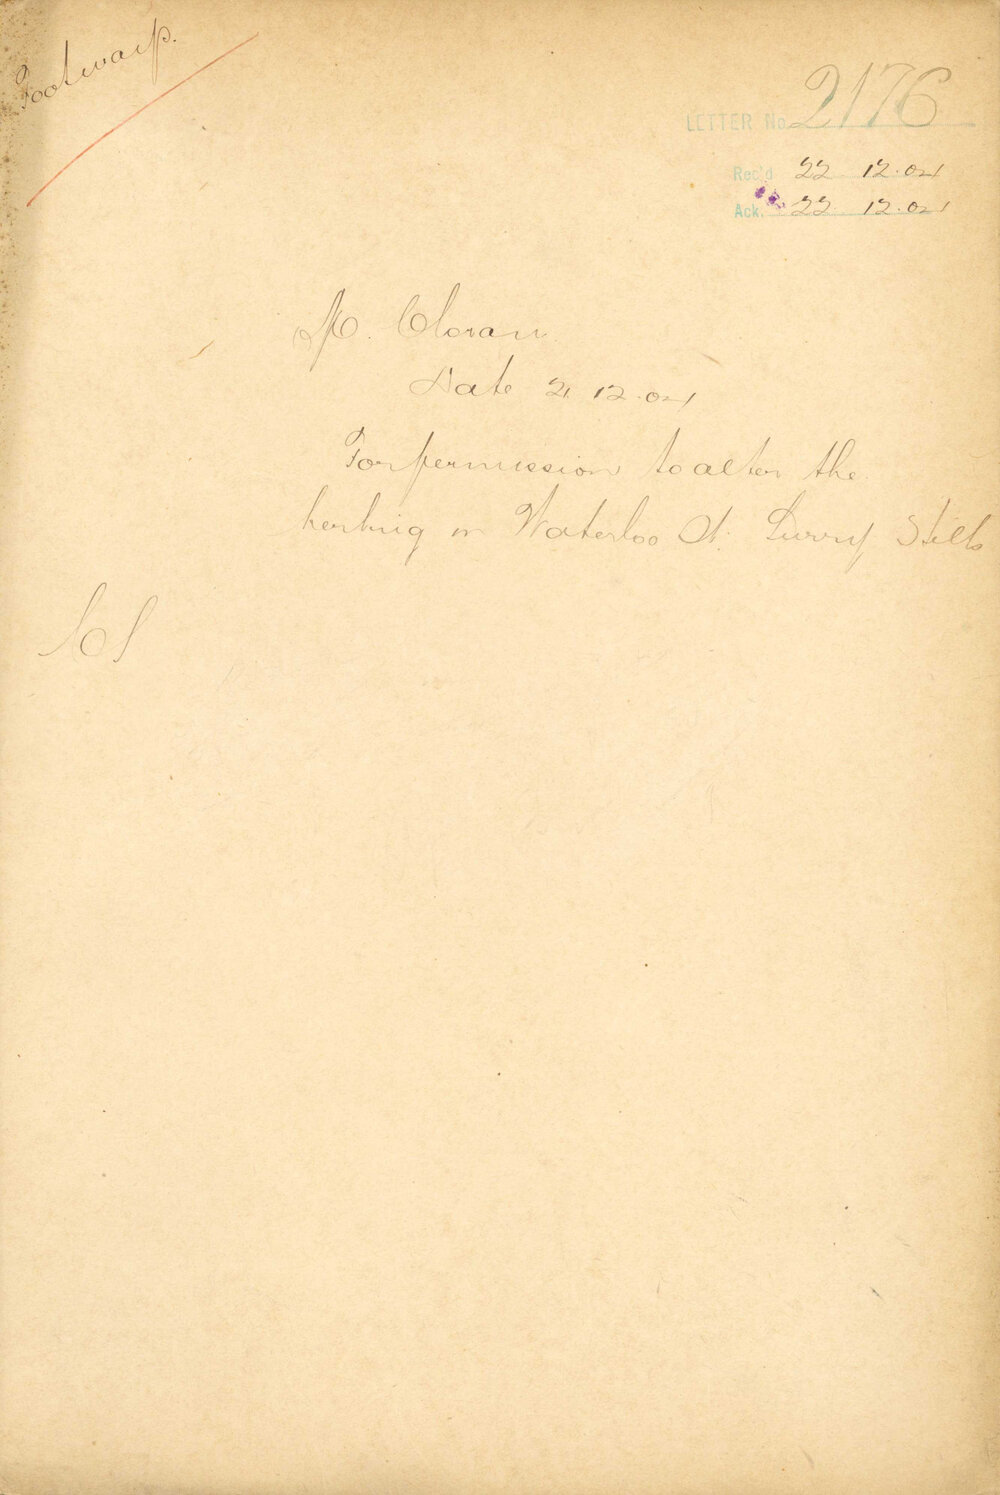 Footways.
LETTER No. 2176
Rec'd 22 12.04
Ack. 22 12.04
M. Cloran
Date 21 12.04
For permission to alter the
kerbing in Waterloo St. Surry Hills
CS